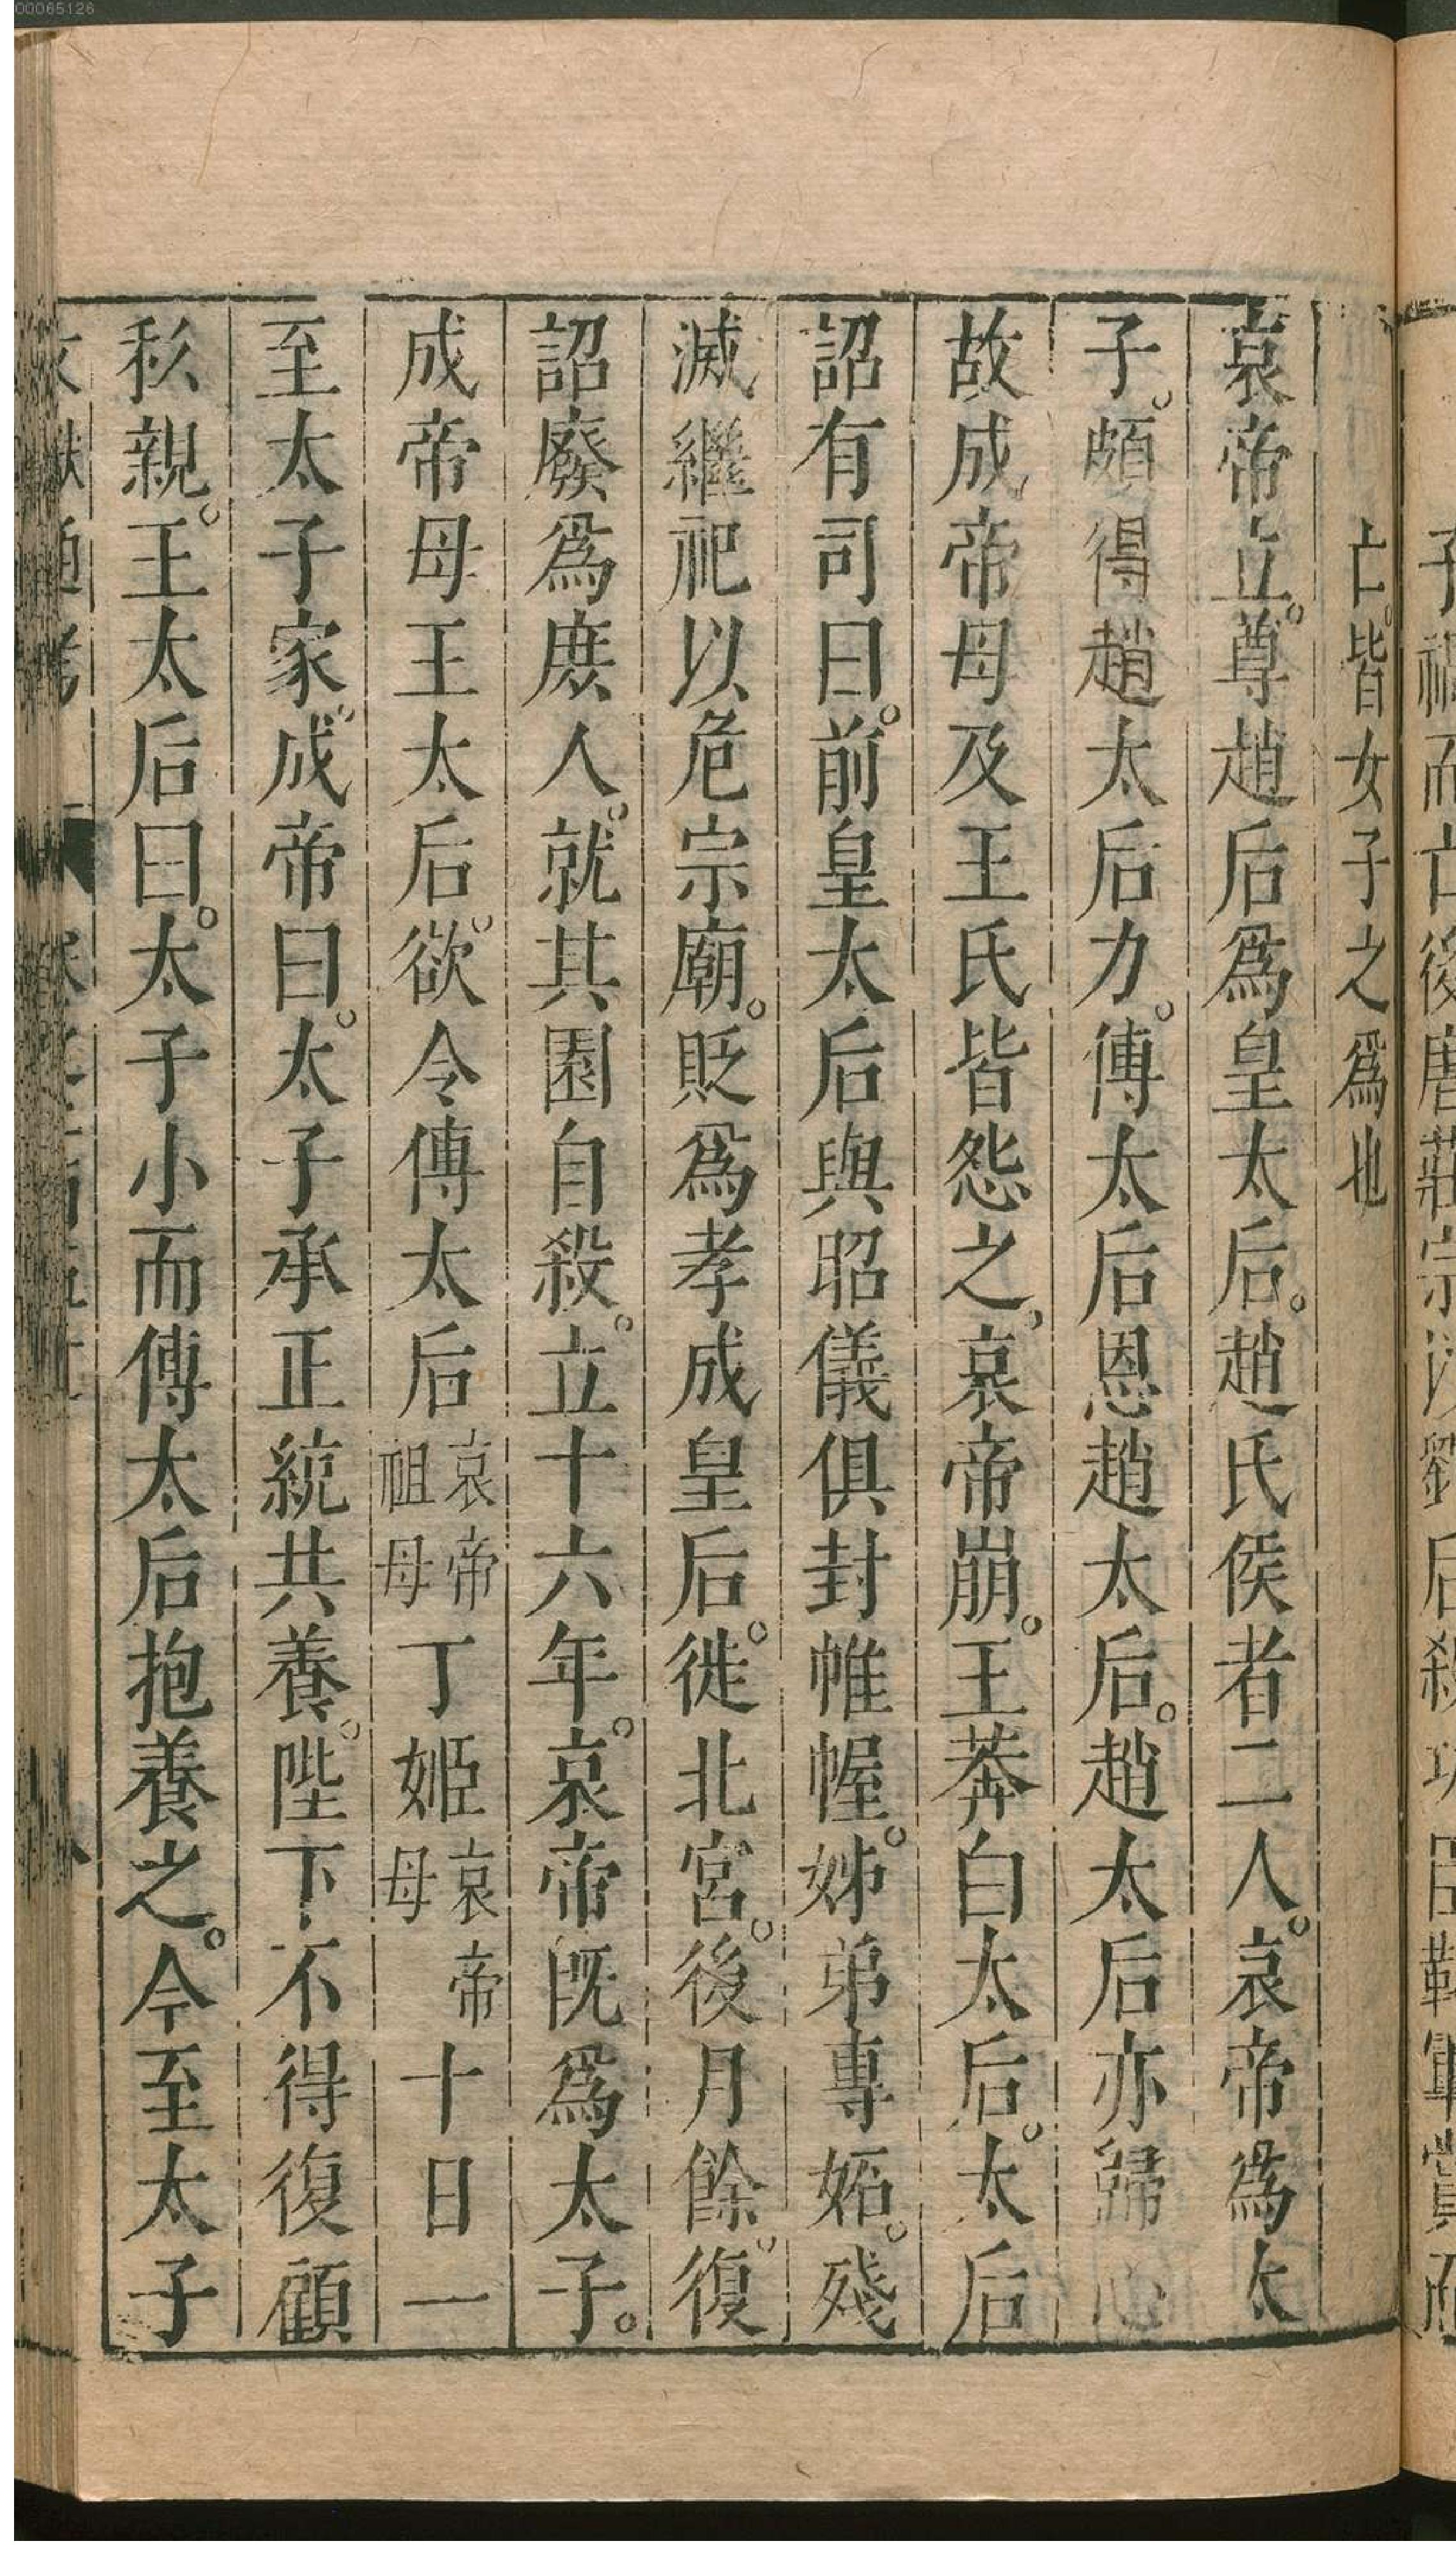 00065126
亡。皆女子之爲也
哀帝立。尊趙后爲皇太后。趙氏侯者二人。哀帝爲太
子。頗得趙太后力。傅太后恩趙太后。趙太后亦歸心
故成帝母及王氏皆怨之。哀帝崩。王莽白太后。太后
詔有司曰。前皇太后與昭儀俱封帷幄。姊弟專妬。殘
滅繼祀以危宗廟。貶爲孝成皇后。徙北宮。後月餘。復
詔廢爲庶人。就其園自殺。立十六年。哀帝既爲太子。
成帝母王太后。欲令傅太后哀帝祖母丁姬哀帝母十日一
至太子家。成帝曰。太子承正統共養。陛下不得復顧
私親。王太后曰。太子小而傅太后抱養之。今至太子